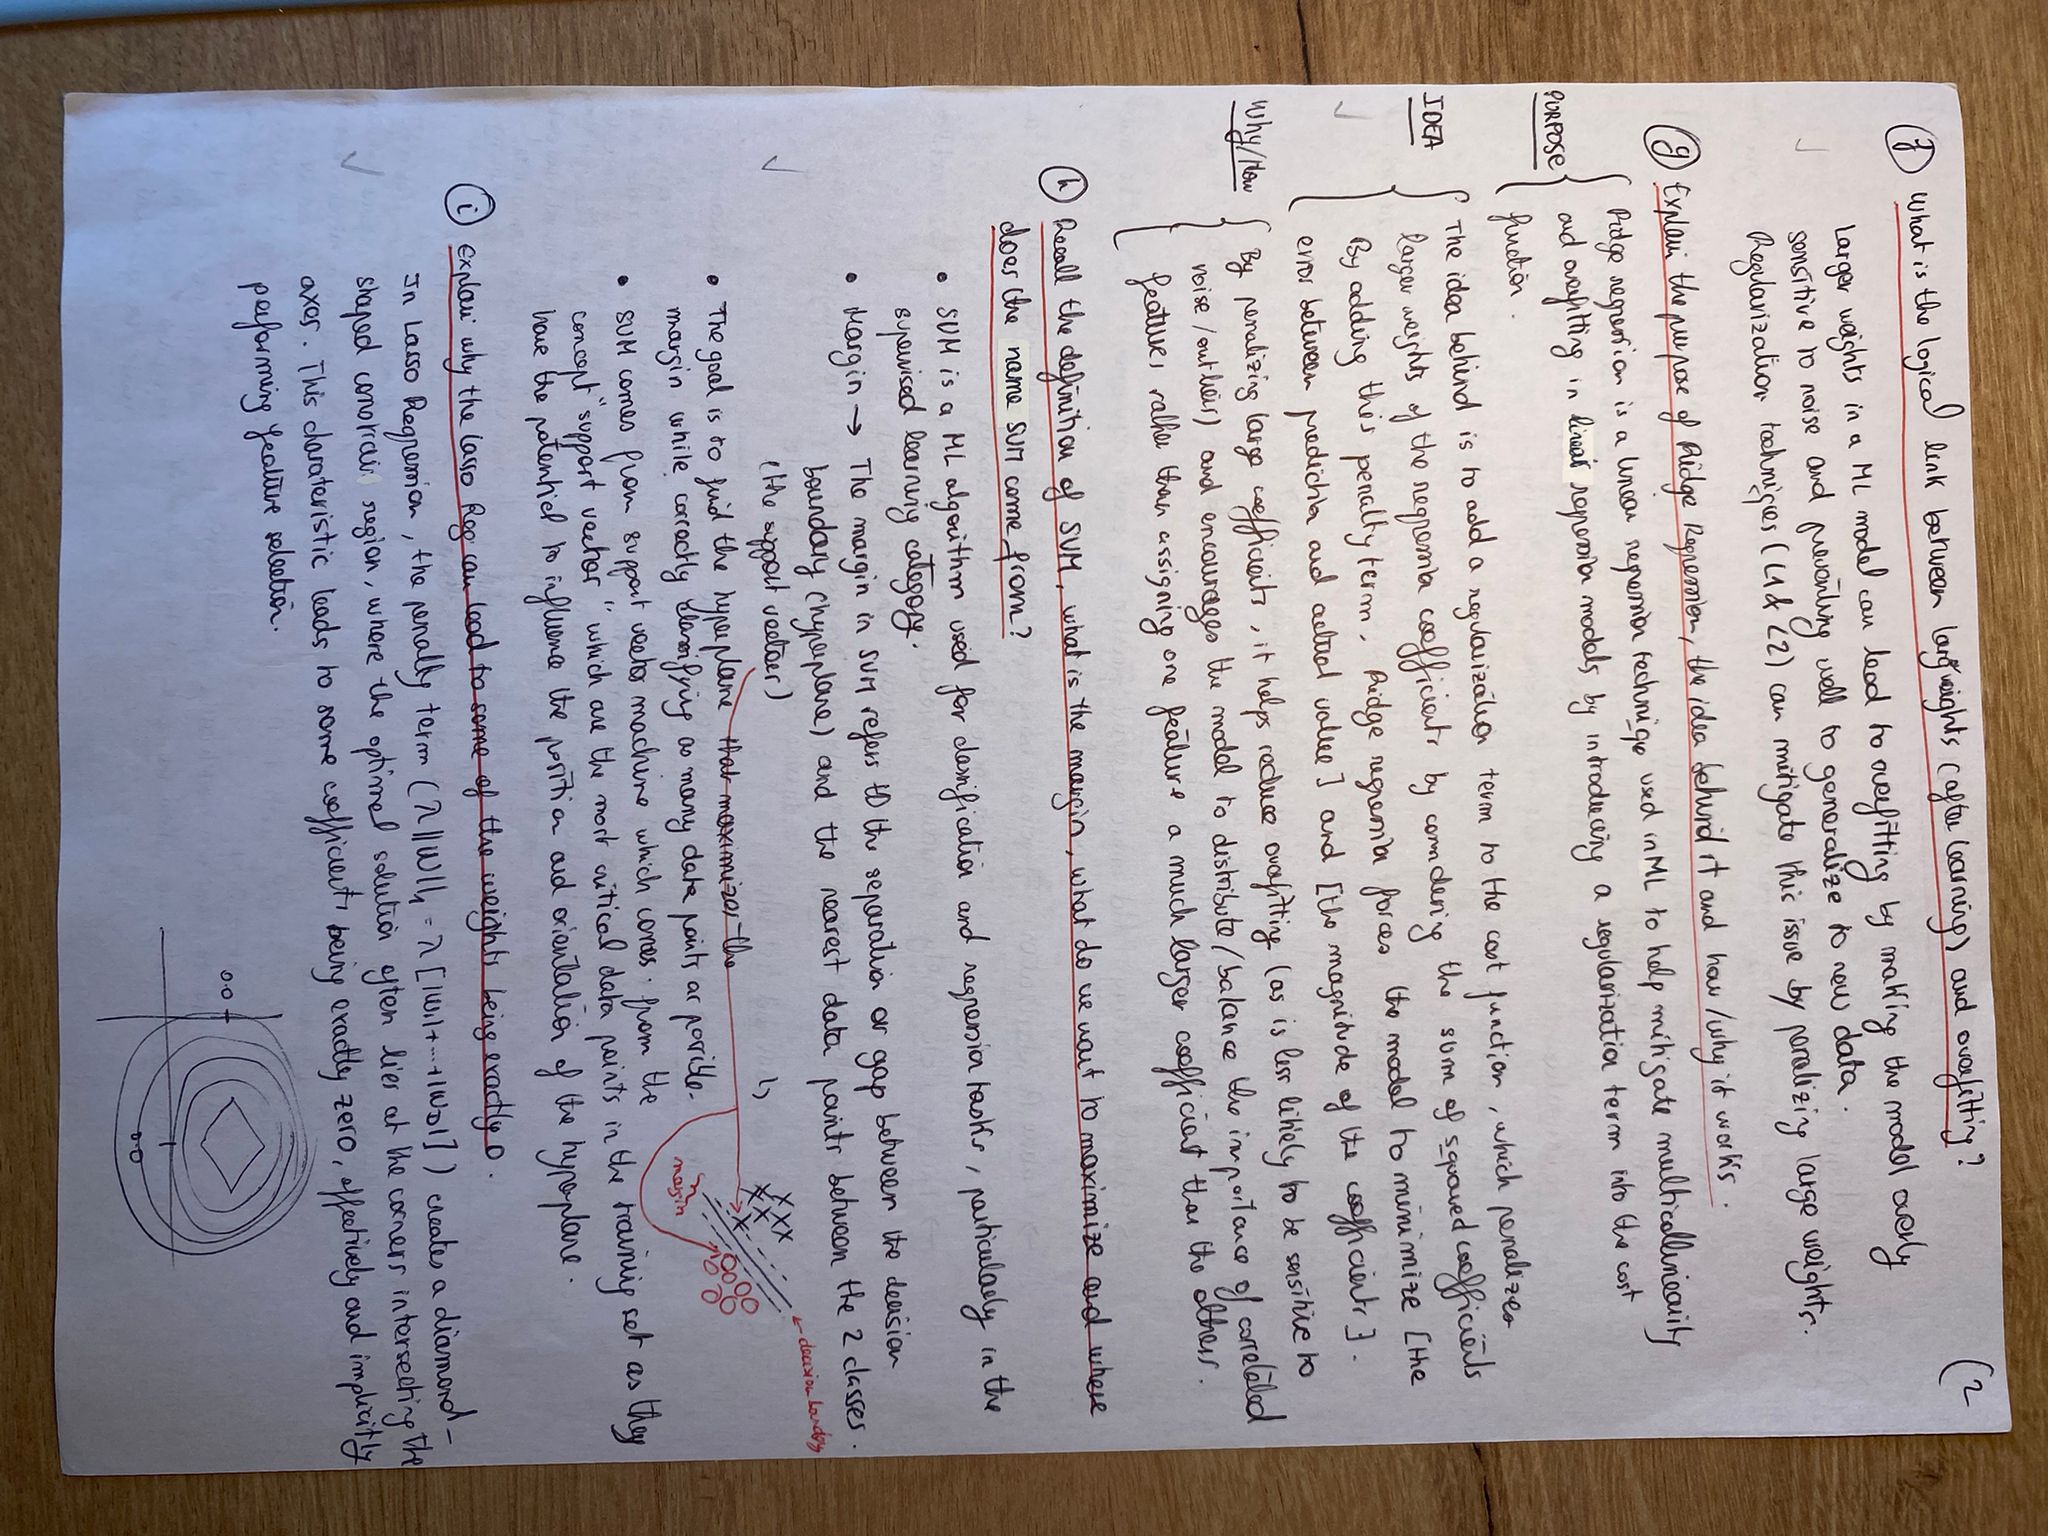 (2
(f) What is the logical link between larg weights (after learning) and overfitting?
Larger weights in a ML model can lead to overfitting by making the model overly
sensitive to noise and preventing well to generalize to new data.
Regularization techniques (L1 & L2) can mitigate this issue by penalizing large weights.
(g) Explain the purpose of Ridge Regression, the idea behind it and how/why it works.
PURPOSE
Ridge regression is a linear regression technique used in ML to help mitigate multicollinearity
and overfitting in linear regression models by introducing a regularization term into the cost
function.
IDEA
The idea behind is to add a regularization term to the cost function, which penalizes
larger weights of the regression coefficients by considering the sum of squared coefficients
By adding this penalty term, Ridge regression forces the model to minimize [the
error between prediction and actual value] and [the magnitude of the coefficients].
Why/How
By penalizing large coefficients, it helps reduce overfitting (as is less likely to be sensitive to
noise/outliers) and encourages the model to distribute/balance the importance of correlated
features rather than assigning one feature a much larger coefficient than the others.
(h) Recall the definition of SVM, what is the margin, what do we want to maximize and where
does the name SVM come from?
• SVM is a ML algorithm used for classification and regression tasks, particularly in the
supervised learning category.
• Margin → The margin in SVM refers to the separation or gap between the decision
boundary (hyperplane) and the nearest data points between the 2 classes.
(the support vectors)
← decision boundary
margin
• The goal is to find the hyperplane that maximizes the
margin while correctly classifying as many data points as possible.
• SVM comes from support vector machine which comes from the
concept "support vector" which are the most critical data points in the training set as they
have the potential to influence the position and orientation of the hyperplane.
(i) Explain why the Lasso Reg can lead to some of the weights being exactly 0.
In Lasso Regression, the penalty term (λ||W||₁ = λ[|W₁|+...+|W_D|]) creates a diamond-
shaped constrain region, where the optimal solution often lies at the corners intersecting the
axes. This charateristic leads to some coefficients being exactly zero, effectively and implicitly
performing feature selection.
0.0
0.0